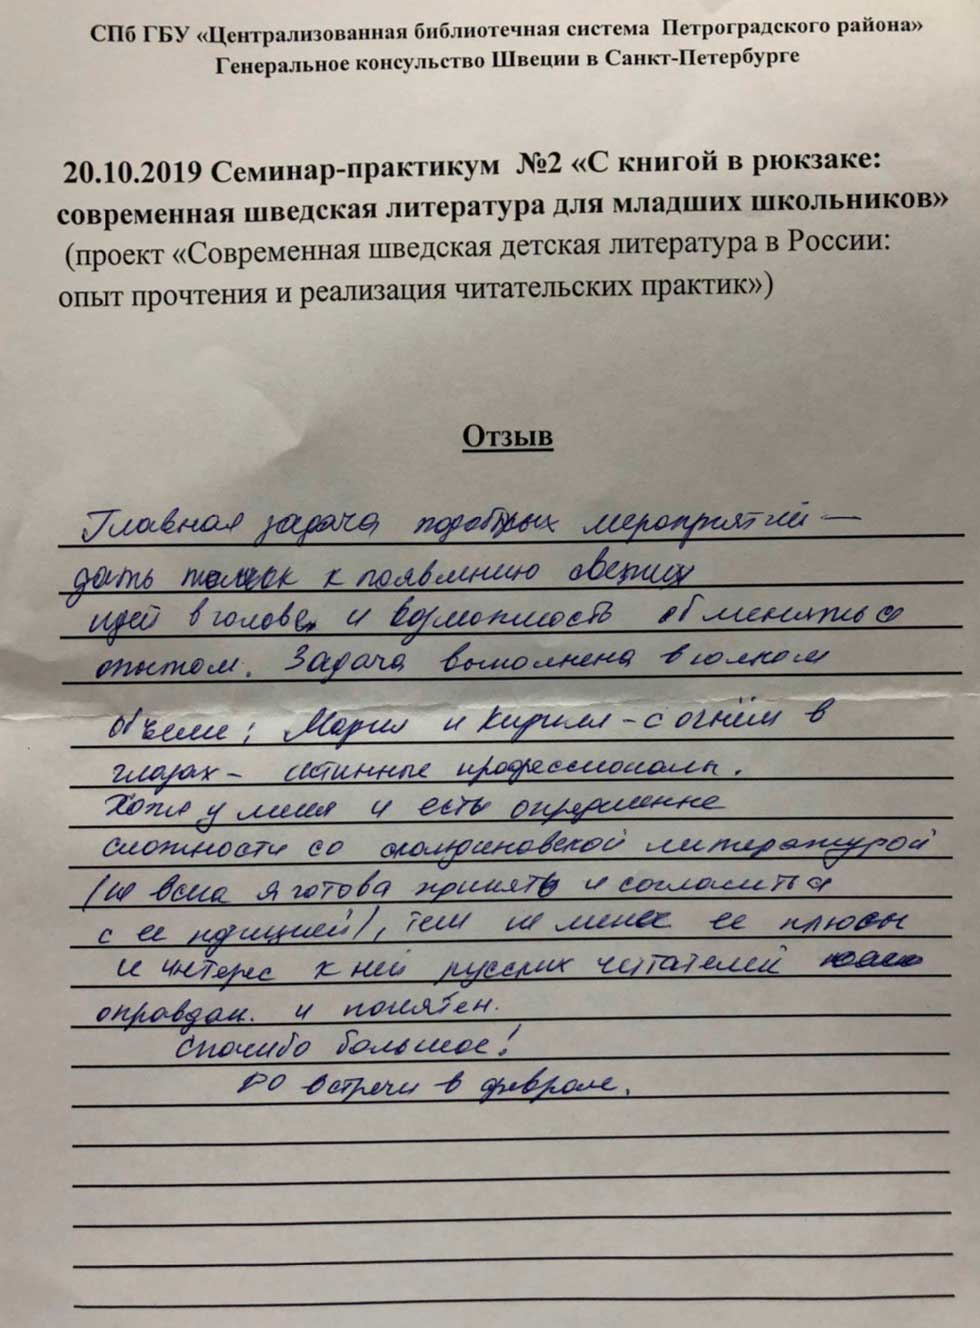 СПб ГБУ «Централизованная библиотечная система Петроградского района»
Генеральное консульство Швеции в Санкт-Петербурге
20.10.2019 Семинар-практикум №2 «С книгой в рюкзаке:
современная шведская литература для младших школьников»
(проект «Современная шведская детская литература в России:
опыт прочтения и реализация читательских практик»)
Отзыв
Главная задача подобных мероприятий —
дать толчок к появлению свежих
идей в голове и возможность обменяться
опытом. Задача выполнена в полном
объеме; Мария и Кирилл - с огнём в
глазах - истинные профессионалы.
Хотя у меня и есть определенные
сложности со скандинавской литературой
(не всегда я готова принять и согласиться
с ее позицией), тем не менее ее плюсы
и интерес к ней русских читателей
оправдан. и понятен.
Спасибо большое!
До встречи в феврале.